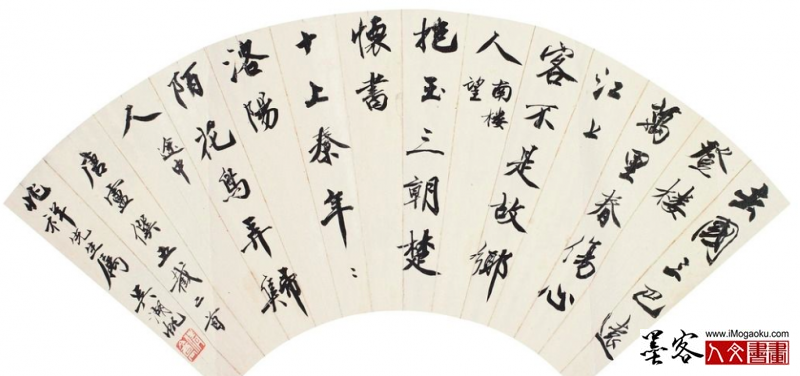 去國三巴遠
登樓
萬里春傷心
江上
客不是故鄉
人 南樓望
抱玉三朝楚
懷書
十上秦年〻
洛陽
陌花鳥弄歸
人 途中
唐盧僎五截二首
兆祥先生属 吳湖帆
www.iMogaoku.com
墨客 人文書畫